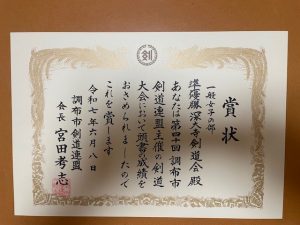 剣
賞状
一般女子の部
準優勝 深大寺剣道会 殿
あなたは第四十回調布市
剣道連盟主催の剣道
大会において頭書の成績を
おさめられましたので
これを賞します
令和七年六月八日
調布市剣道連盟
会長 宮田考志